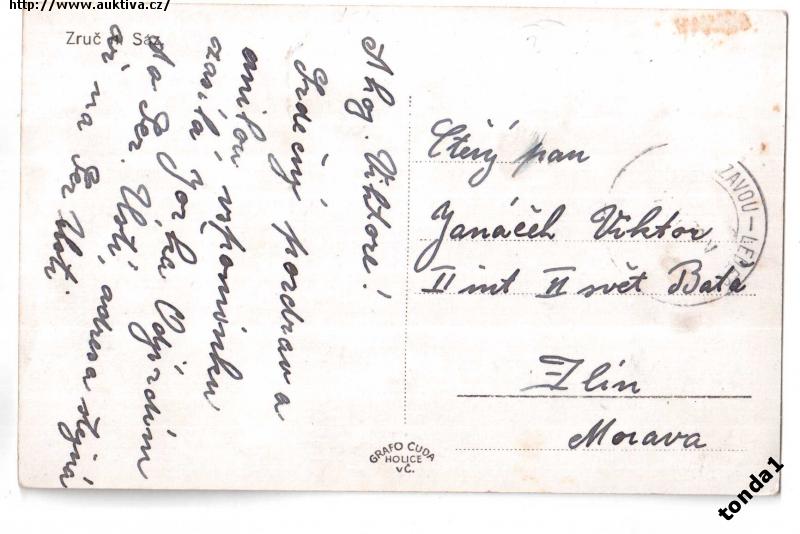 http://www.auktiva.cz/
Zruč n. Sáz.
Ahoj. Viktore!
Srdečný pozdrav a
milou vzpomínku
zasílá Jorka Odjíždím
do Sez. Ústí, adresa stejná
až na Sez Ústí.
Ctěný pan
Janáček Viktor
II int II svět Bata
Zlín
Morava
ZAVOU – LED
GRAFO ČUDA
HOLICE
v Č.
tonda1